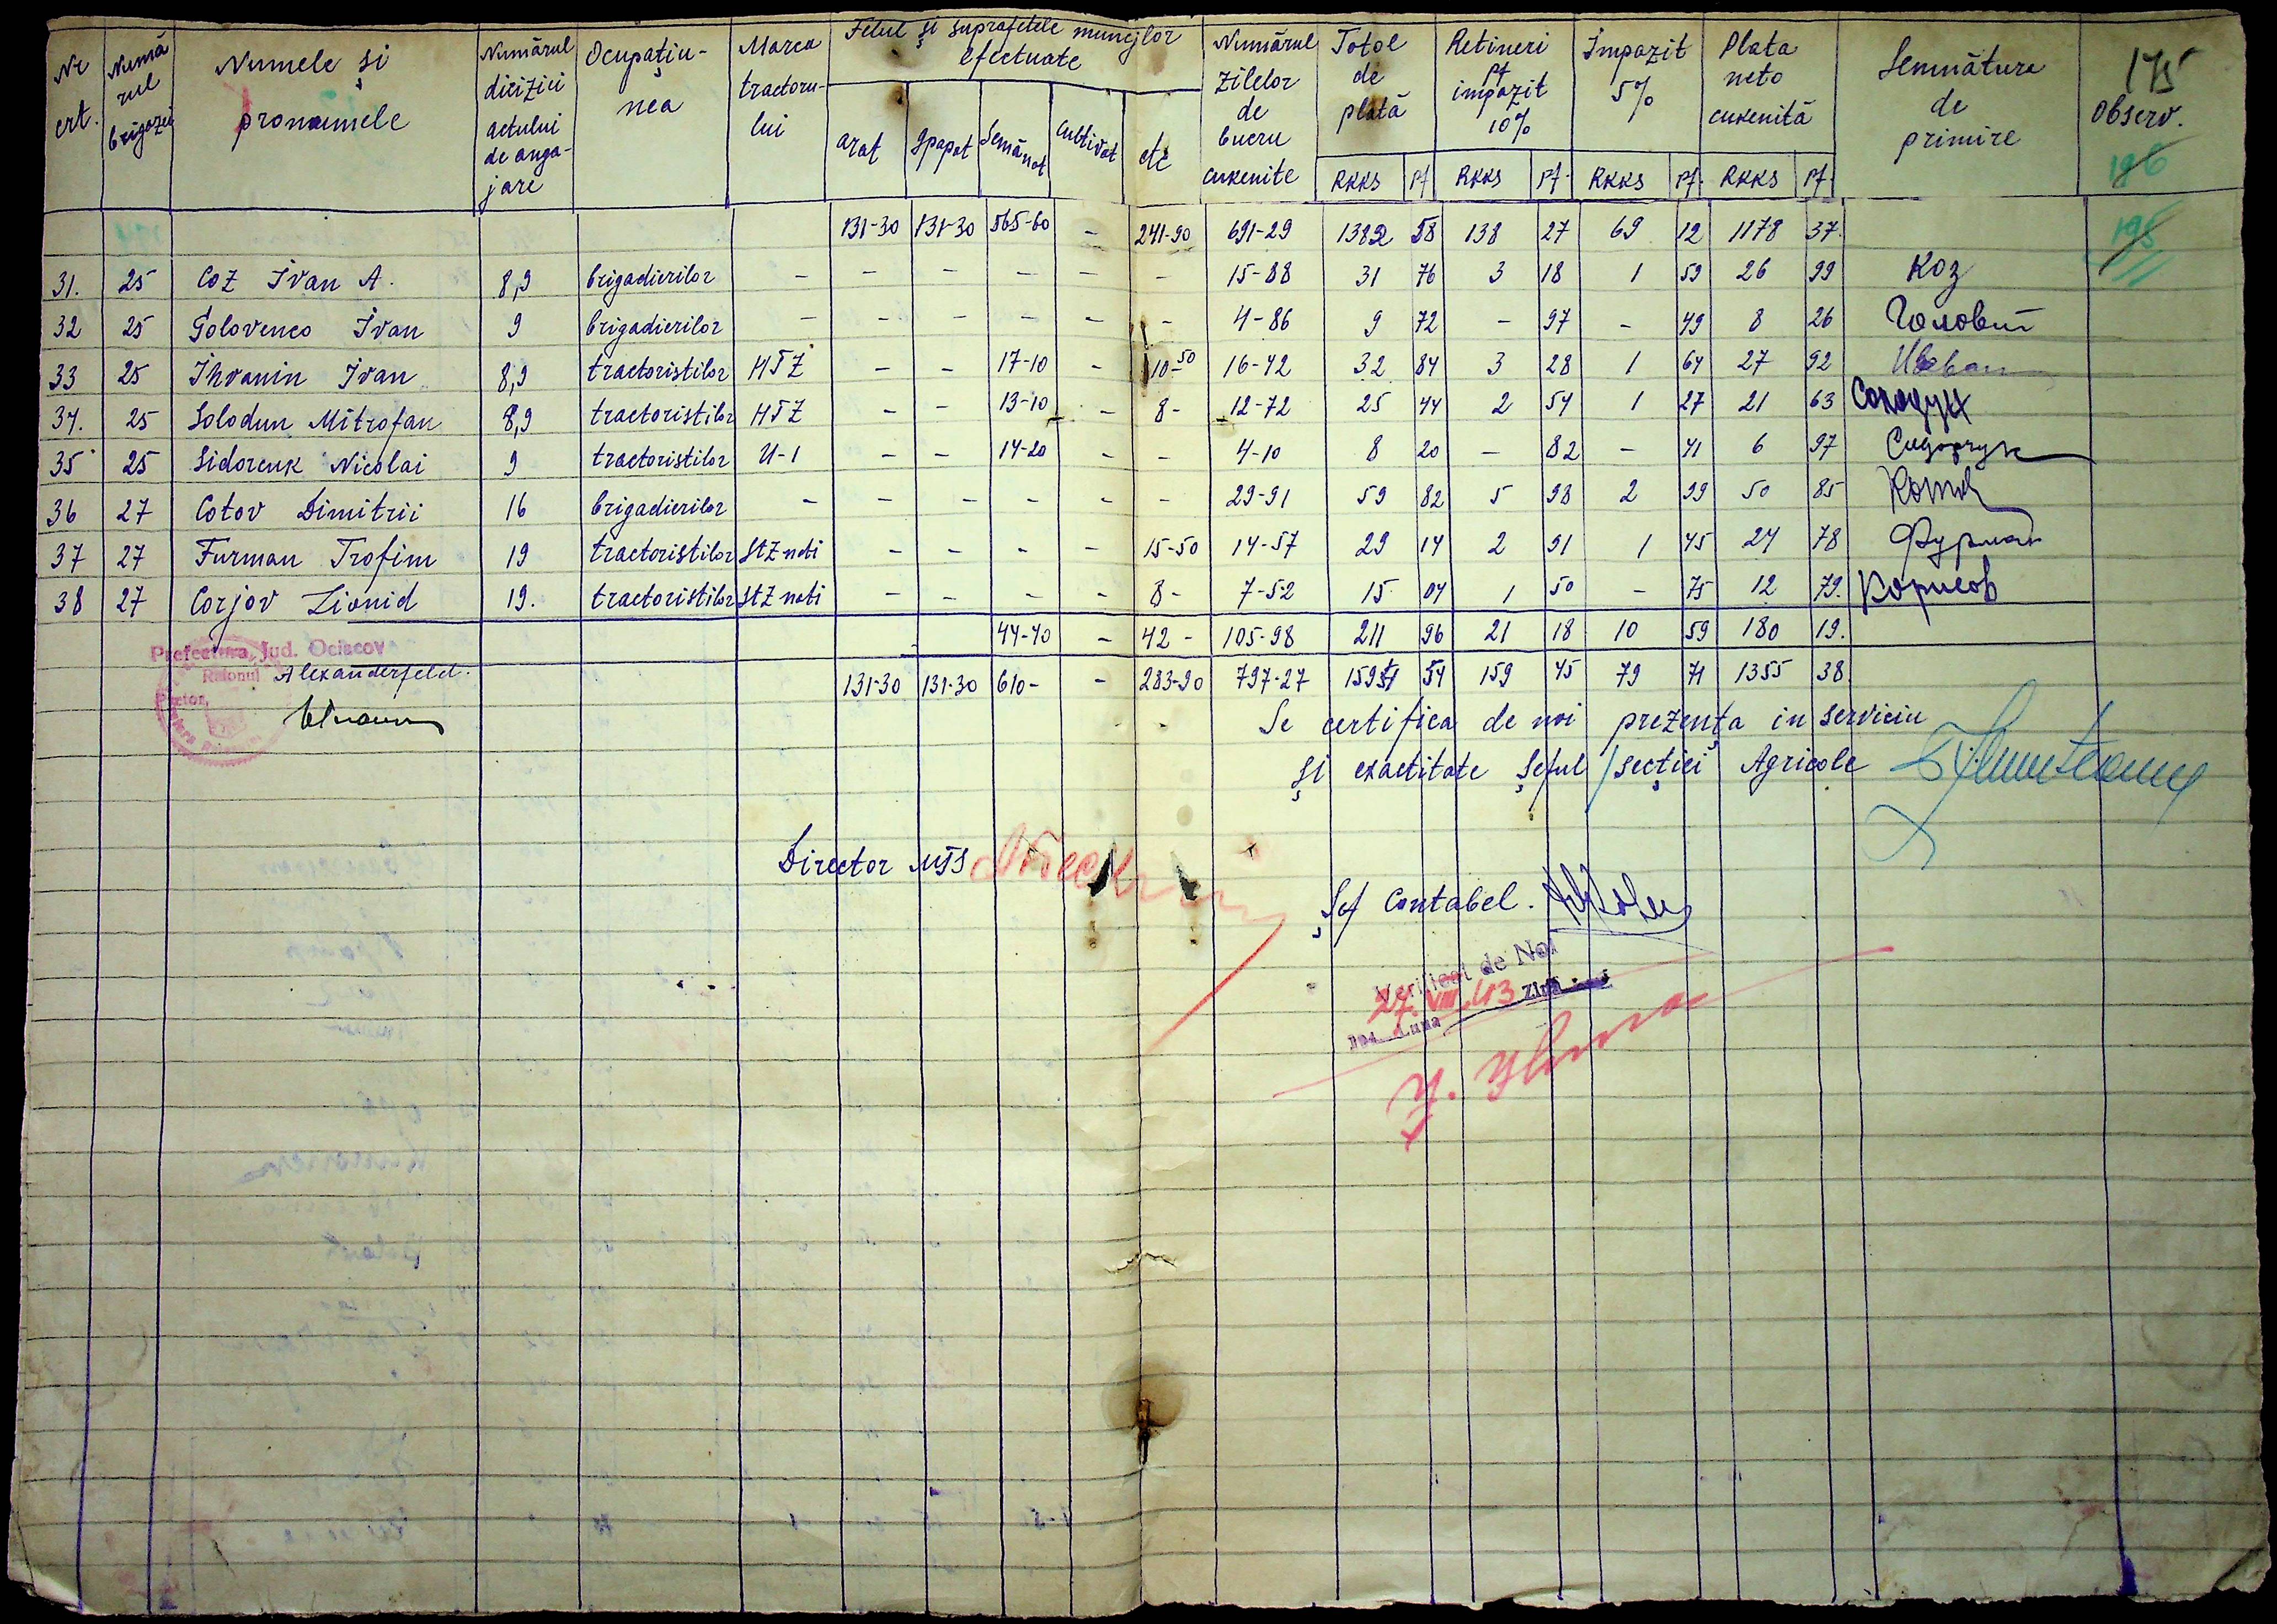 175
Nr crt. | Numărul brigazei | Numele și pronumele | Numărul dicizici actului de angajare | Ocupațiunea | Marca tractorului | Felul și suprafetele muncilor efectuate | Numărul zilelor de lucru cuvenite | Total de plată | Retineri pt impozit 10% | Impazit 5% | Plata neto cuvenită | Semnătura de primire | Observ.
arat | gpapat | Semănat | Cultivat | etc | RKKS | Pf | RKKS | Pf. | RKKS | Pf. | RKKS | Pf.
196
131-30 | 131-30 | 565-60 | - | 241-90 | 691-29 | 1382 | 58 | 138 | 27 | 69 | 12 | 1178 | 37. | 195
31. | 25 | Coz Ivan A. | 8,9 | brigadierilor | - | - | - | - | - | - | 15-88 | 31 | 76 | 3 | 18 | 1 | 59 | 26 | 99 | Коз
32 | 25 | Golovenco Ivan | 9 | brigadierilor | - | - | - | - | - | - | 4-86 | 9 | 72 | - | 97 | - | 49 | 8 | 26 | Головт
33 | 25 | Ihvanin Ivan | 8,9 | tractoristilor | HTZ | - | - | 17-10 | - | 10-50 | 16-42 | 32 | 84 | 3 | 28 | 1 | 64 | 27 | 92
34. | 25 | Solodun Mitrofan | 8,9 | tractoristilor | HTZ | - | - | 13-10 | - | 8- | 12-72 | 25 | 44 | 2 | 54 | 1 | 27 | 21 | 63 | Солодун
35 | 25 | Sidorcuk Nicolai | 9 | tractoristilor | U-1 | - | - | 14-20 | - | - | 4-10 | 8 | 20 | - | 82 | - | 41 | 6 | 97 | Сидорчук
36 | 27 | Cotov Dimitrii | 16 | brigadierilor | - | - | - | - | - | - | 29-91 | 59 | 82 | 5 | 98 | 2 | 99 | 50 | 85 | Котов
37 | 27 | Furman Trofim | 19 | tractoristilor | StZ nati | - | - | - | - | 15-50 | 14-57 | 29 | 14 | 2 | 91 | 1 | 45 | 24 | 78 | Фурман
38 | 27 | Corjov Lionid | 19. | tractoristilor | StZ nati | - | - | - | - | 8- | 7-52 | 15 | 04 | 1 | 50 | - | 75 | 12 | 79. | Коржов
44-40 | - | 42- | 105-98 | 211 | 96 | 21 | 18 | 10 | 59 | 180 | 19.
Prefectura, Jud. Ociacov
Raionul Alexanderfeld.
Pretor,
131-30 | 131-30 | 610- | - | 283-90 | 797-27 | 1594 | 54 | 159 | 45 | 79 | 71 | 1355 | 38.
Se certifica de noi prezența in serviciu
și exactitate Șeful secției Agricole
Director MTS
Șef Contabel.
Verificat de Noi
27. VIII. 43 Ziua
Luna